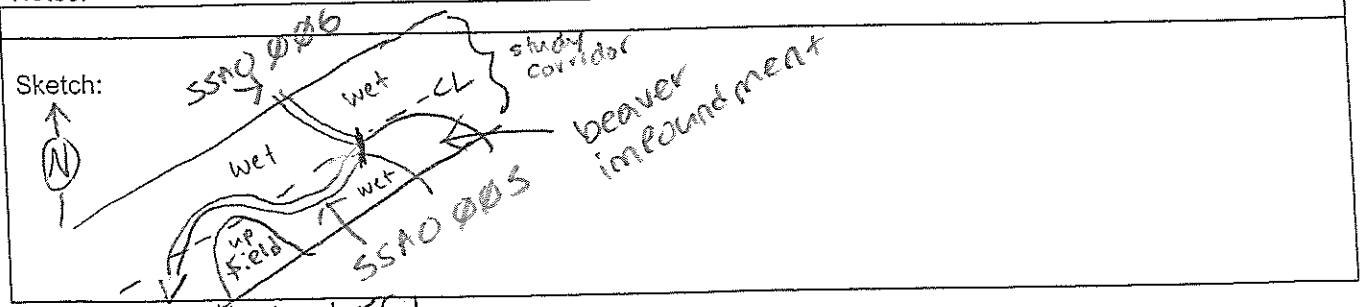 Sketch:
N
SSAO ØØ6
wet
CL
study
corridor
beaver
impoundment
wet
wet
SSAO ØØ5
up
field